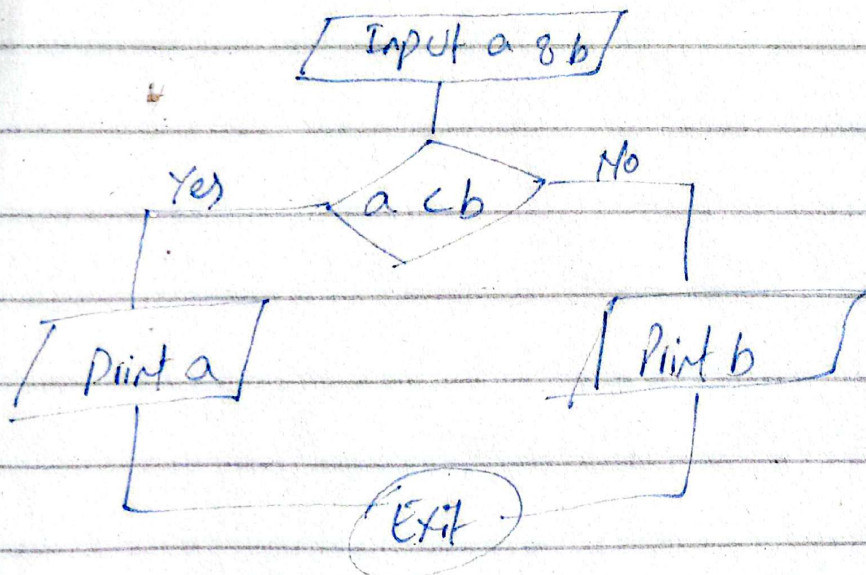 Input a & b
Yes
a < b
No
Print a
Print b
Exit